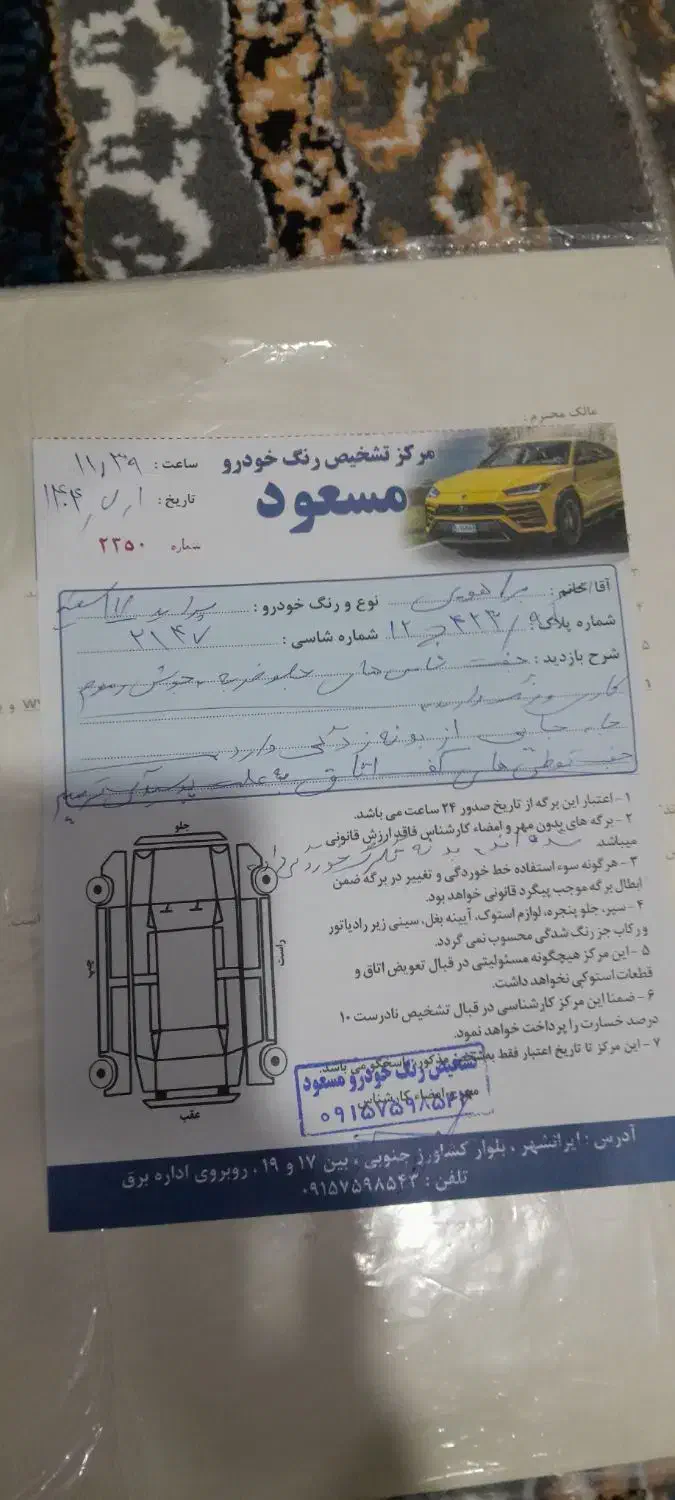 مالک محترم:
مرکز تشخیص رنگ خودرو
مسعود
ساعت: ۱۱٫۳۹
تاریخ:
شماره ۲۲۵۰
آقا/خانم: براهویی نوع و رنگ خودرو: پراید
شماره پلاک: ۴۲۳ ج ۱۲ شماره شاسی: ۲۱۴۷
شرح بازدید: جفت شاسی های جلو ضربه - جوش رسوم
کاری و رنگ دارد
جا به جایی از بدنه زدگی دارد
کف اتاق به علت
۱- اعتبار این برگه از تاریخ صدور ۲۴ ساعت می باشد.
۲- برگه های بدون مهر و امضاء کارشناس فاقد ارزش قانونی
میباشد.
۳- هرگونه سوء استفاده خط خوردگی و تغییر در برگه ضمن
ابطال برگه موجب پیگرد قانونی خواهد بود.
۴- سپر، جلو پنجره، لوازم استوک، آیینه بغل، سینی زیر رادیاتور
و رکاب جز رنگ شدگی محسوب نمی گردد.
۵- این مرکز هیچگونه مسئولیتی در قبال تعویض اتاق و
قطعات استوکی نخواهد داشت.
۶- ضمنا این مرکز کارشناسی در قبال تشخیص نادرست ۱۰
درصد خسارت را پرداخت خواهد نمود.
۷- این مرکز تا تاریخ اعتبار فقط به شخص مذکور پاسخگو می باشد.
مهر و امضاء کارشناس
جلو
چپ
راست
عقب
تشخیص رنگ خودرو مسعود
۰۹۱۵۷۵۹۸۵۴۳
آدرس: ایرانشهر، بلوار کشاورز جنوبی، بین ۱۷ و ۱۹، روبروی اداره برق
تلفن: ۰۹۱۵۷۵۹۸۵۴۳